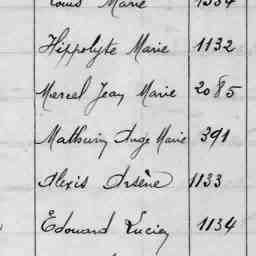 Louis Marie 1334
Hippolyte Marie 1132
Marcel Jean Marie 2085
Mathurin Ange Marie 391
Alexis Arsène 1133
Edouard Lucien 1134